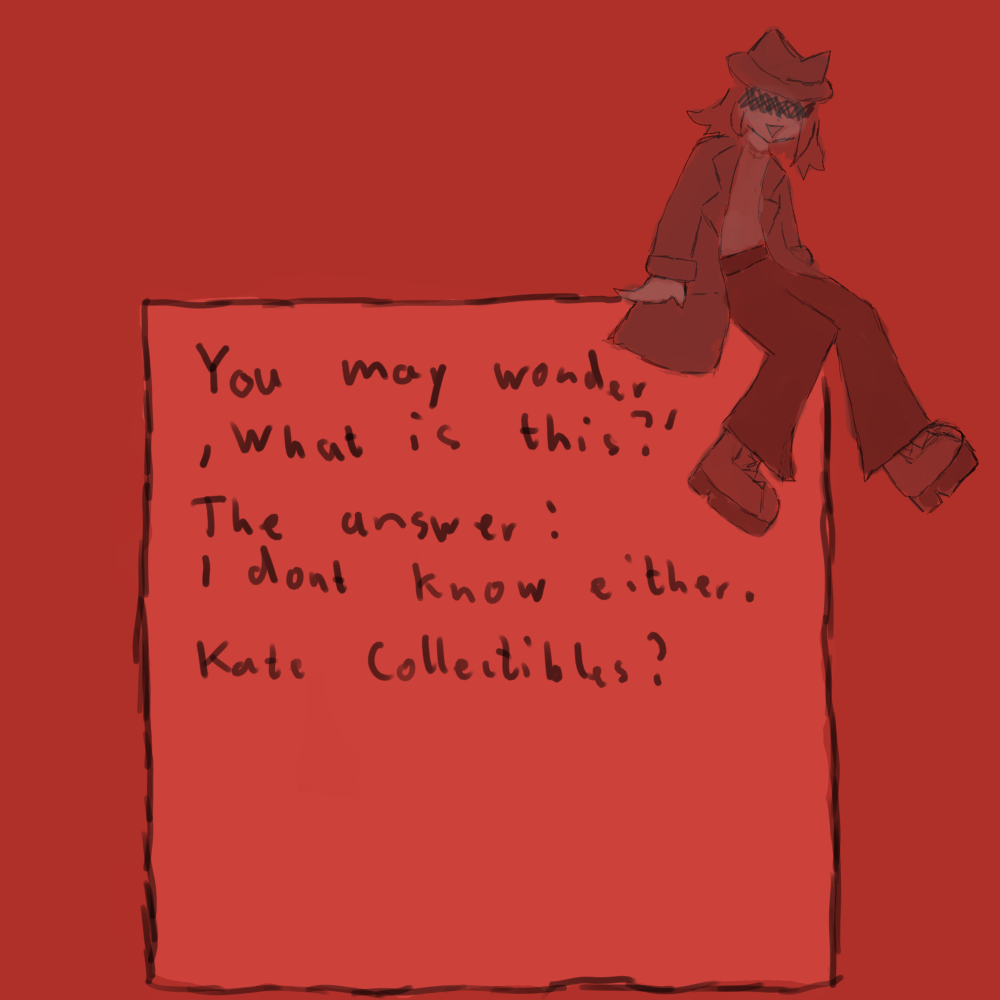 You may wonder
,What is this?'
The answer:
I dont know either.
Kate Collectibles?